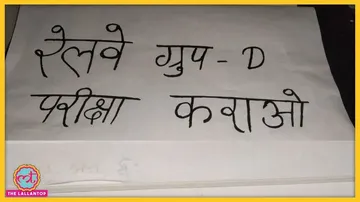 रेलवे ग्रुप - D
परीक्षा कराओ
THE LALLANTOP